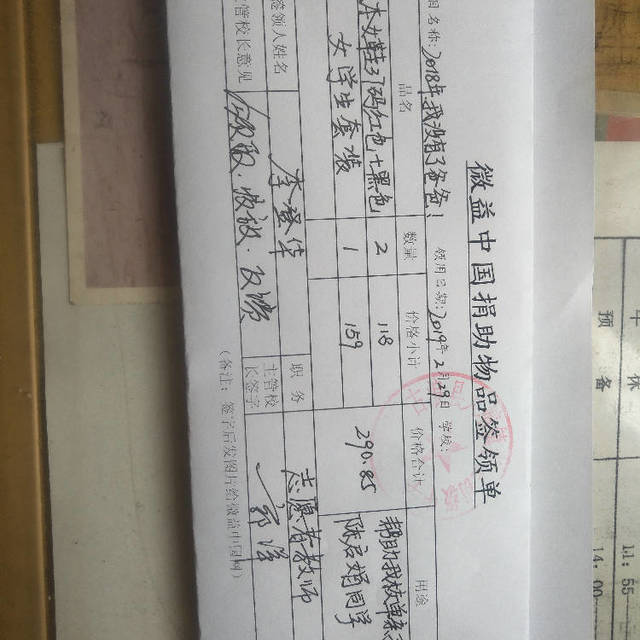 微益中国捐助物品签领单
名称:2018年我没有了爸爸! 领用日期:2019年2月29日 学校:
品名 数量 价格小计 价格合计 用途
本女鞋37码红色+黑色 2 118 290.85 帮助我校单亲
女学生套装 1 159 陈启嫣同学
签领人姓名 李登华 职务 志愿者教师
管校长意见 领取·收讫·反馈 主管校长签字
(备注:签字后发图片给微益中国网)
午休
预备
11:55
14:00